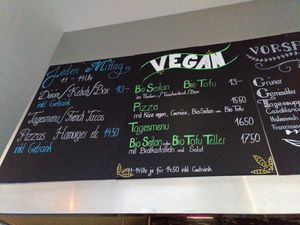 Jeden Mittag
11 - 14 Uhr
Dürüm / Kebab / Box 10.-
inkl Getränk
Tagesmenü / French Tacos
Pizzas Hamurger etc 14.50
inkl Getränk
VEGAN
Bio Seitan Bio Tofu 13.-
im Fladen / Taschenbrot / Box
Pizza 16.50
mit Käse vegan, Gemüse, Bio Seitan oder Bio Tofu
Tagesmenü 15.50
Bio Seitan oder Bio Tofu Teller 17.50
mit Bratkartoffeln und Salat
11-14 Uhr je für 14.50 inkl Getränk
VORSP
Grüner
Gemischter
Tagessuppe